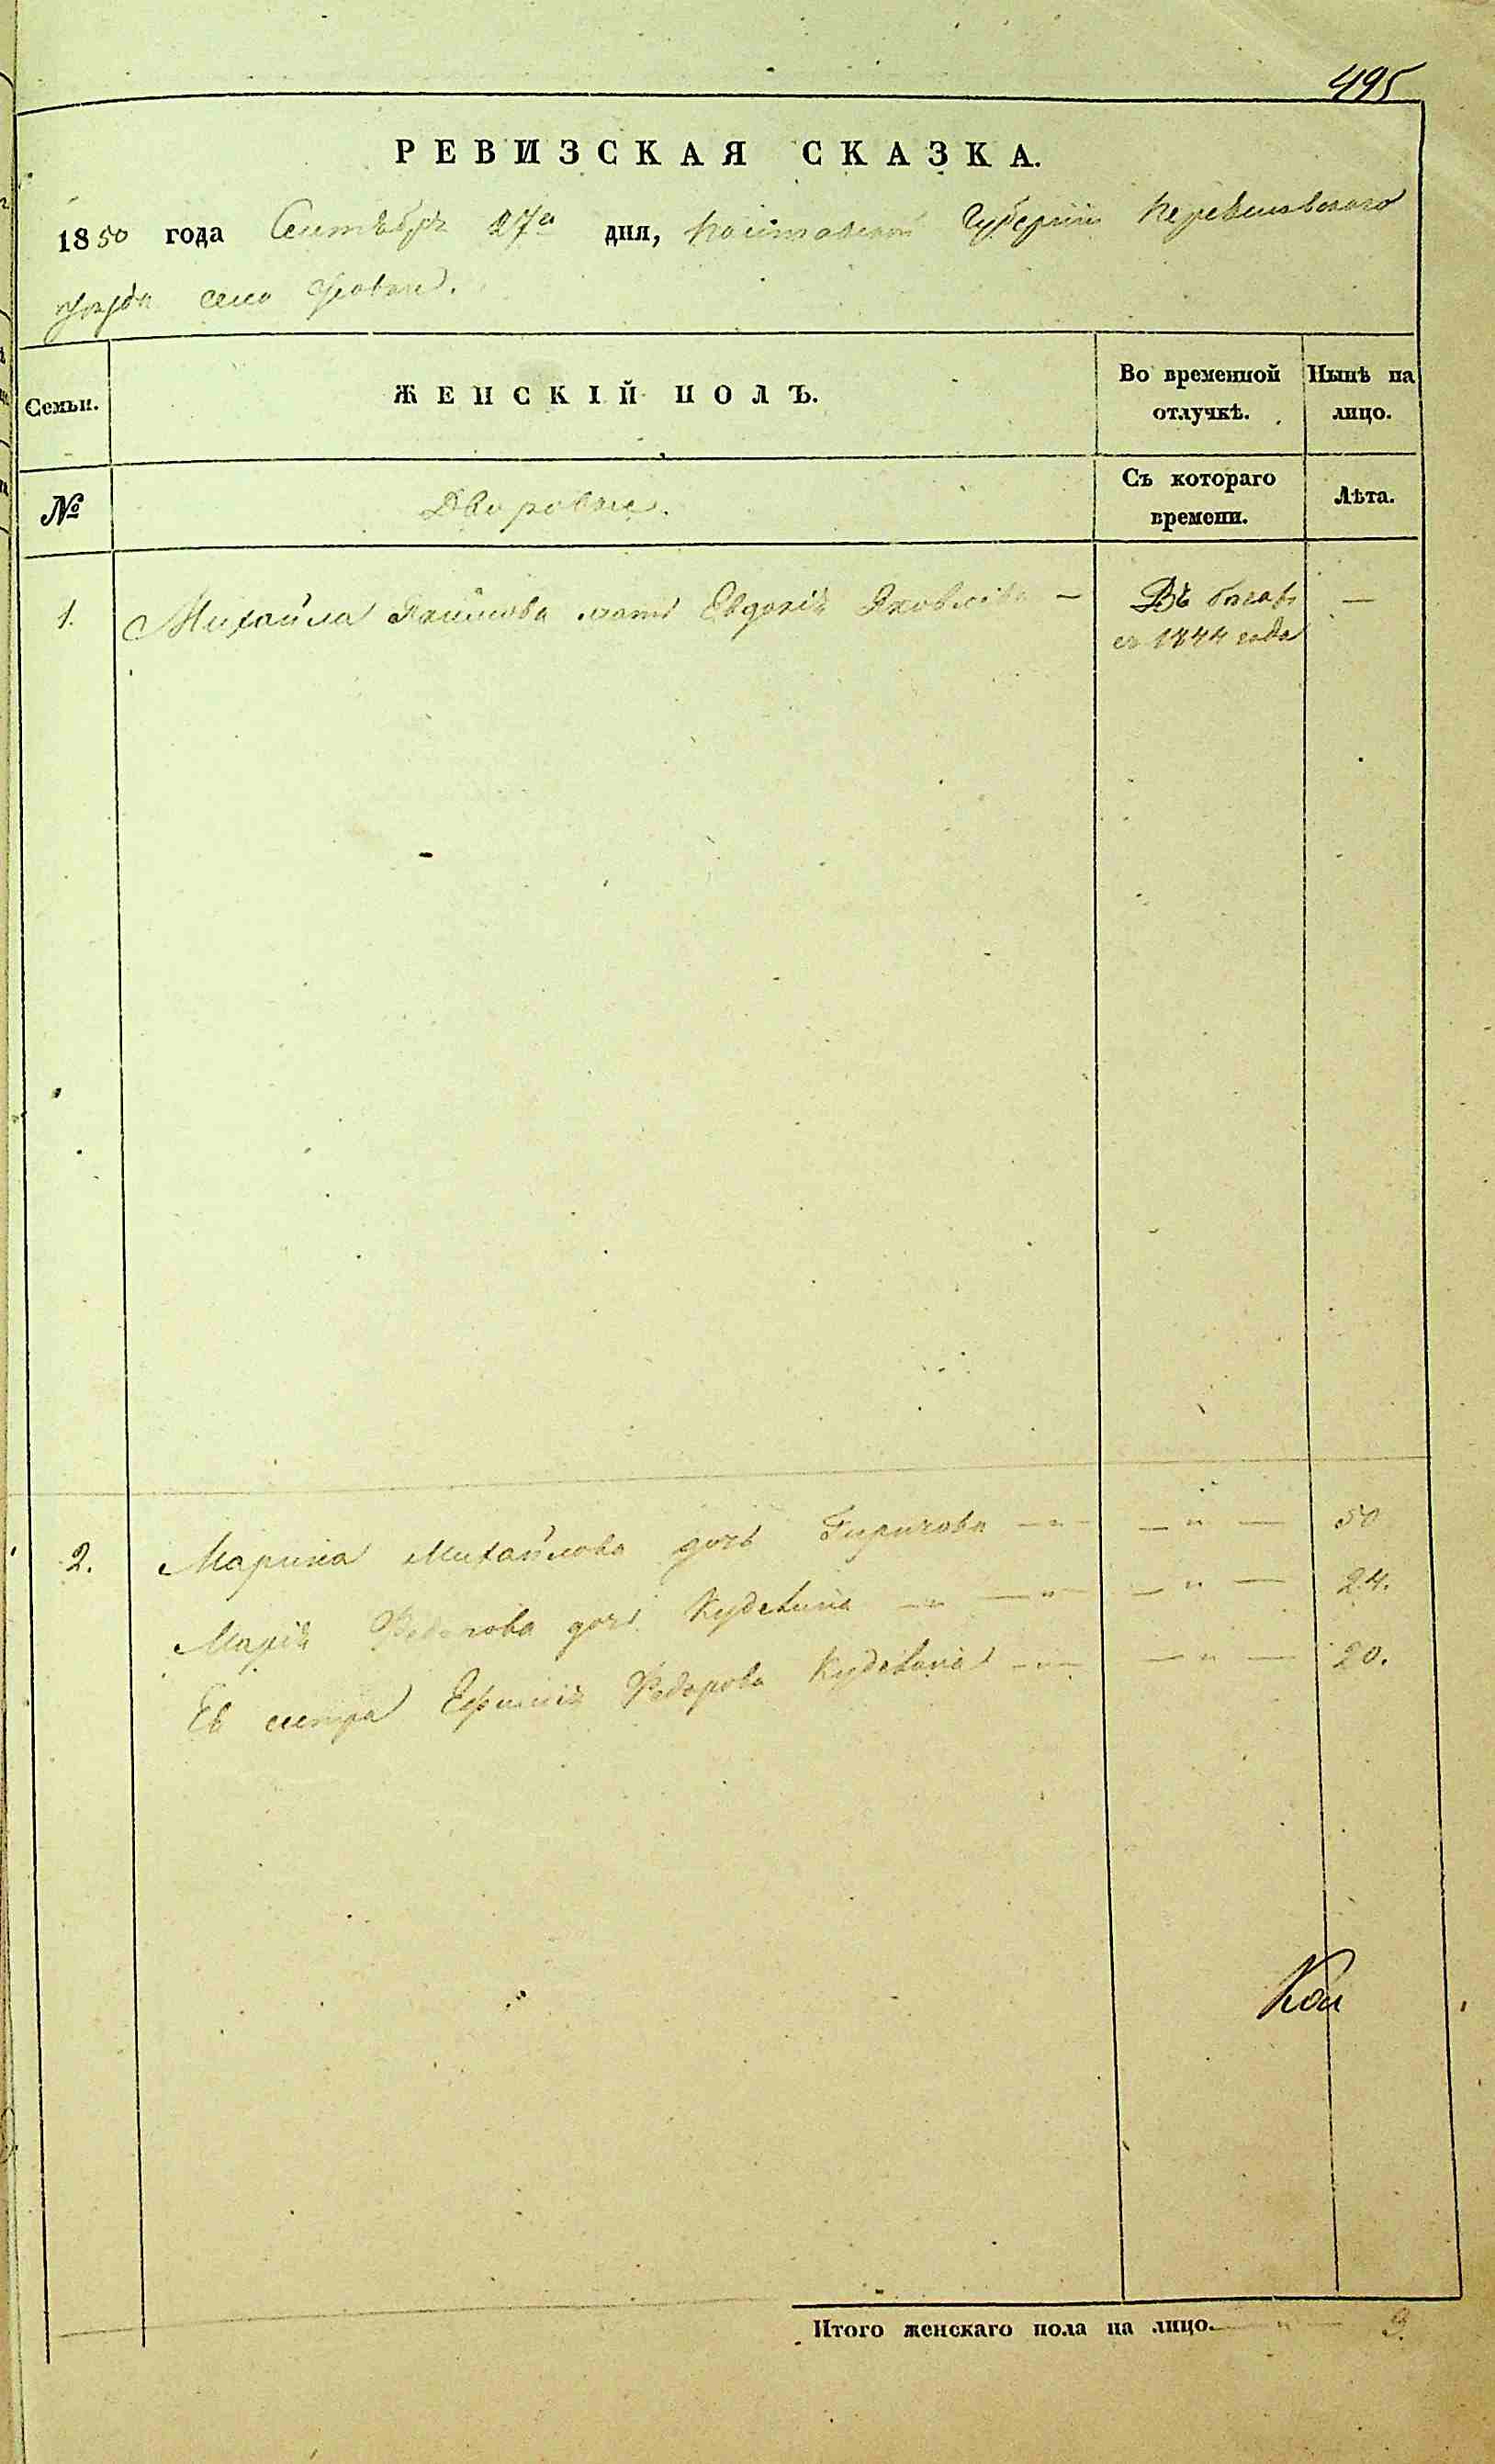 495
РЕВИЗСКАЯ СКАЗКА.
1850 года Сентября 27го дня, Полтавской Губерніи
уѣзда село
Семьи. ЖЕНСКІЙ ПОЛЪ. Во временной отлучкѣ. Нынѣ на лицо.
№ Дворовые. Съ котораго времени. Лѣта.
1. Михайла мать Евдокія Яковлева — Въ бѣгахъ —
съ 1844 года
2. Марина Михайлова дочь — " — — " — 50
Марія Федорова дочь — " — — " — 24.
Её сестра Федорова — " — — " — 20.
Итого женскаго пола на лицо. — " — 3.